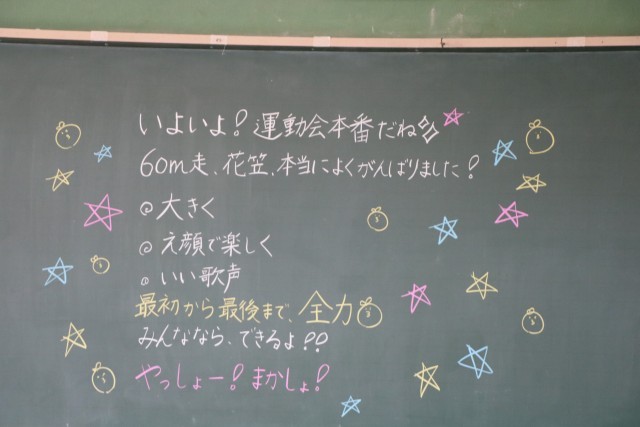 いよいよ!運動会本番だね
60m走、花笠、本当によくがんばりました!
◎大きく
◎え顔で楽しく
◎いい歌声
最初から最後まで、全力
みんななら、できるよ!!
やっしょー!まかしょ!